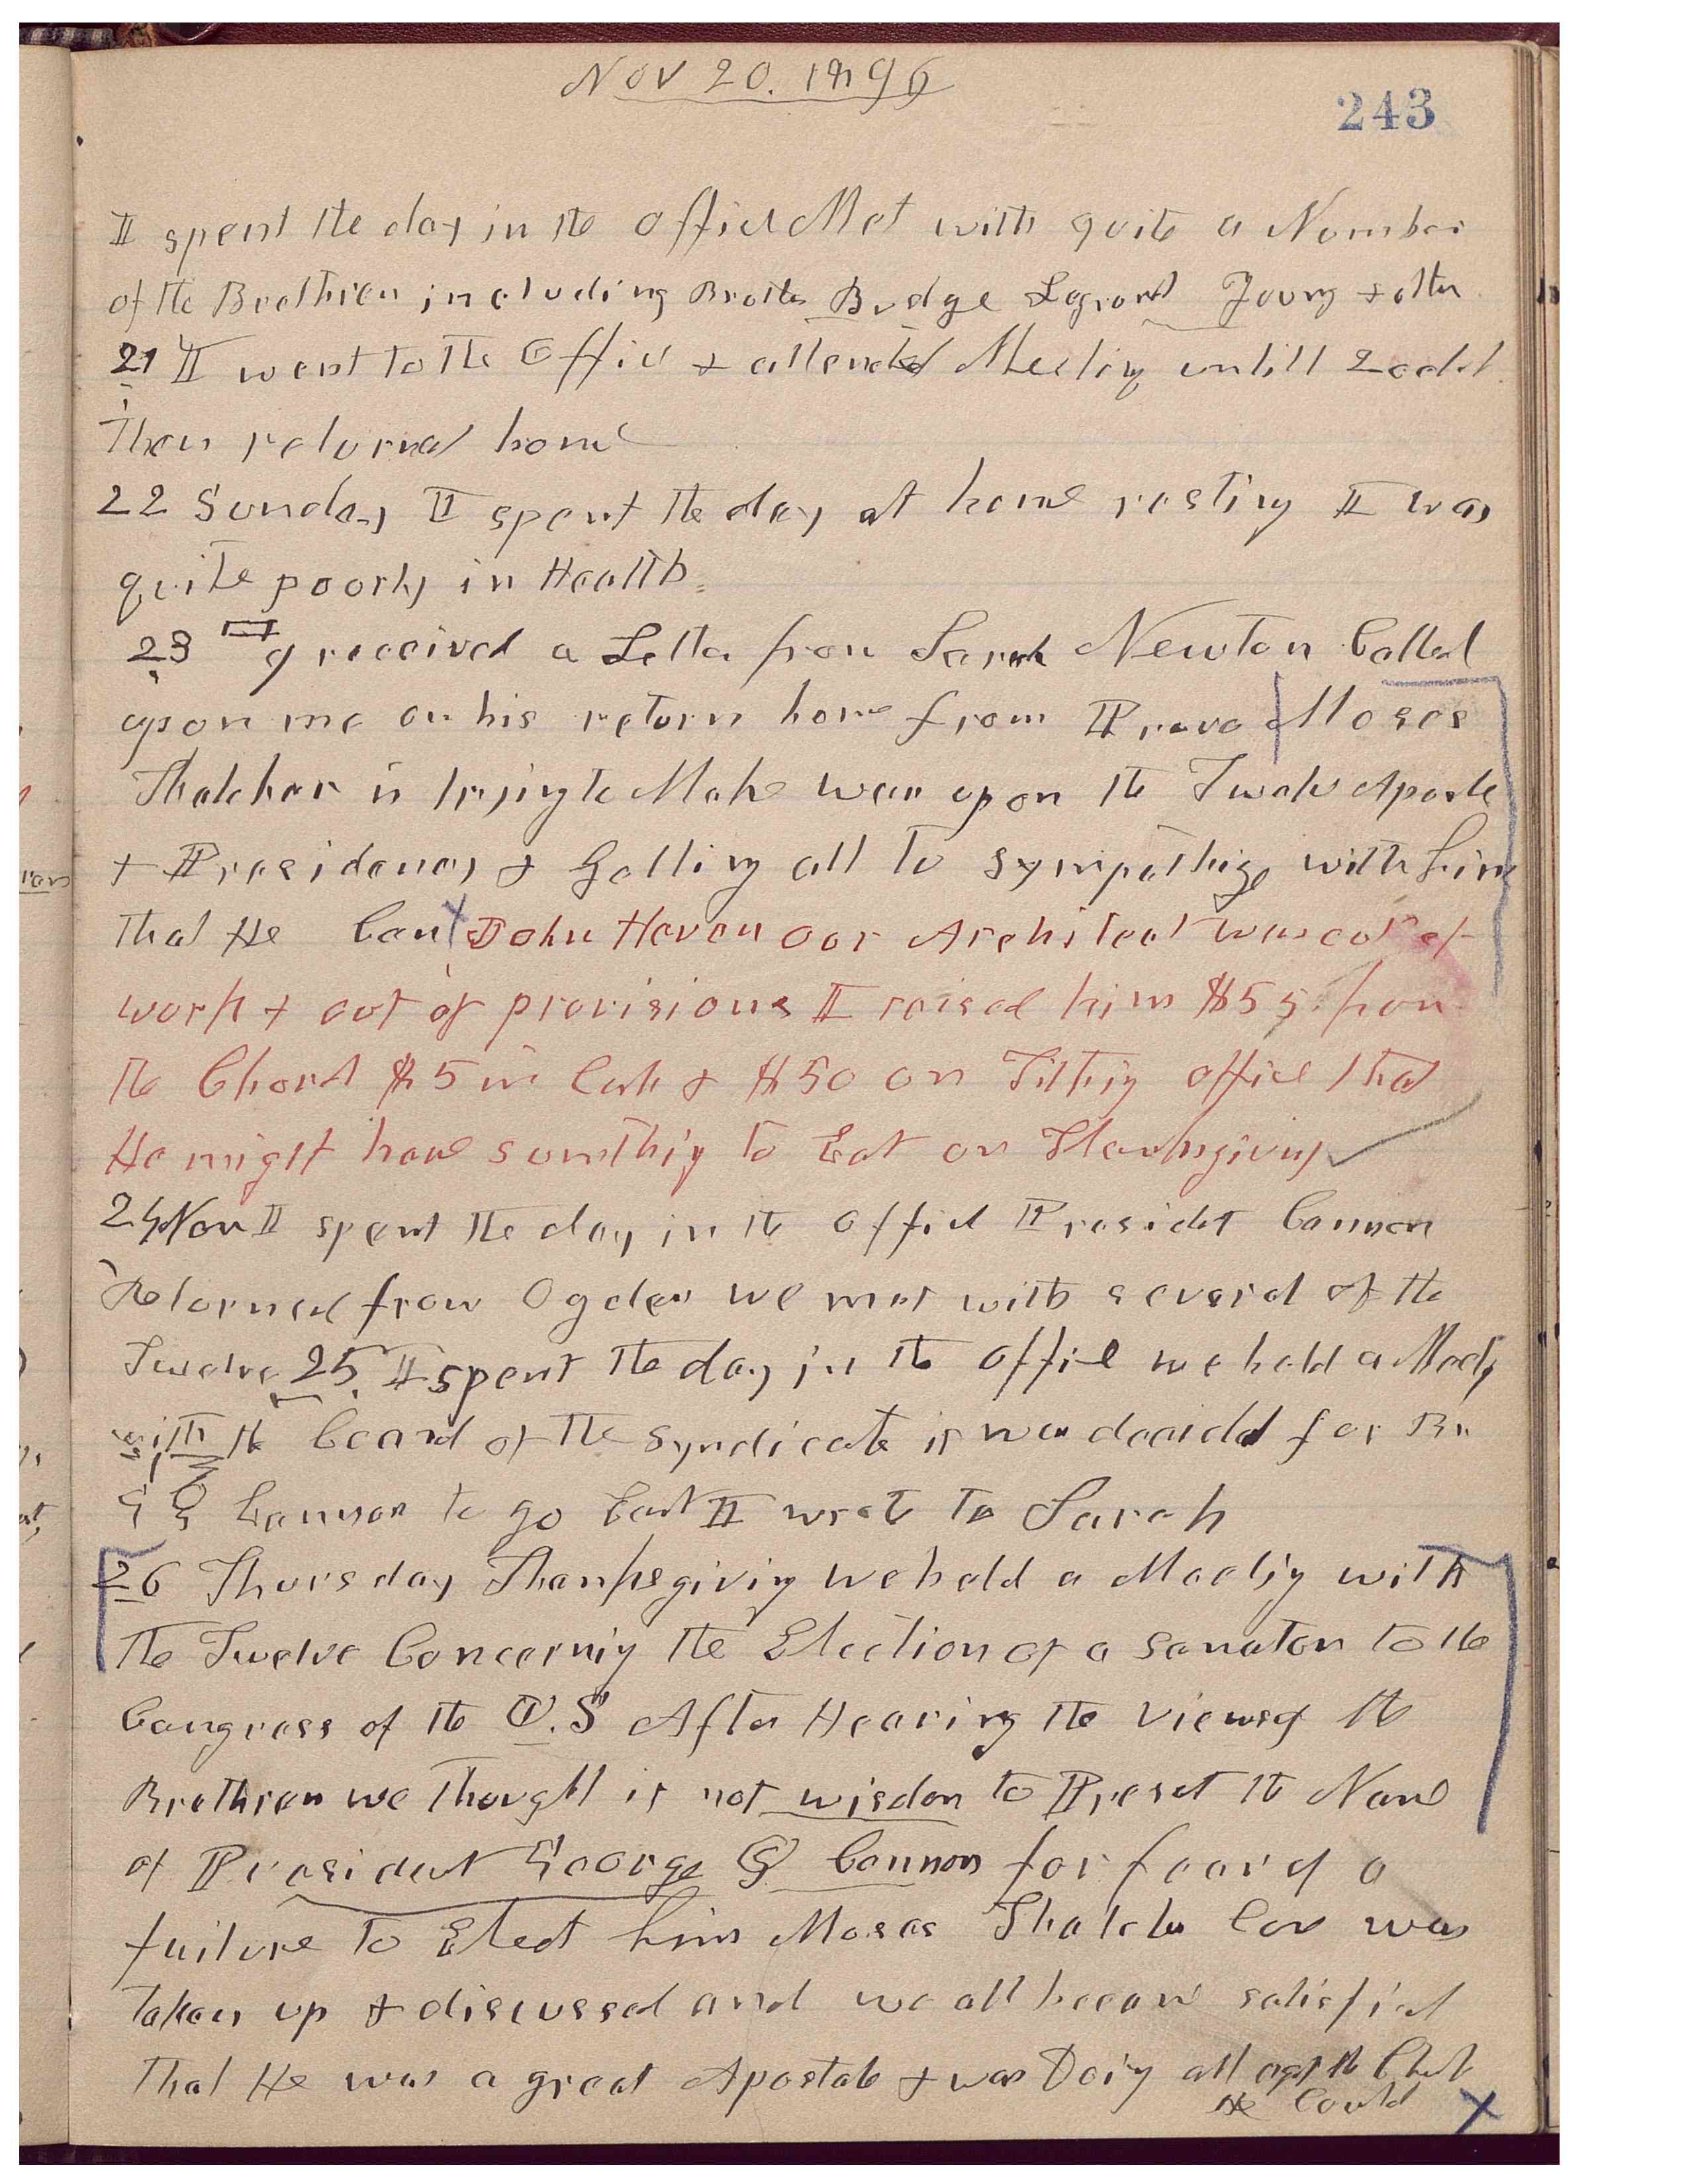 Nov 20. 1896
243
I spent the day in the office Met with quite a Number
of the Brethren including Brother Budge Legrand Young & other
21 I went to the Office & attended Meeting untill 2 oclok
Then returned home
22 Sunday I spent the day at home resting I was
quite poorly in Health
23 I received a Letter from Sarah Newton Called
upon me on his return home from Provo Moses
Thatcher is trying to Make war upon the Twelve Apostle
& Presidency & Getting all to sympathize with him
that He Can John Haven our Architect was out of
work & out of provisions I raised him $55. from
the Church $5 in Cash & $50 on Tithing office that
He might have somthing to Eat on Thanksgiving
24 Nov I spent the day in the office President Cannon
Returned from Ogden we met with several of the
Twelve 25 I spent the day in the office we held a Meetig
with the board of the Syndicate it was decided for Br
G Q Cannon to go East I wrote to Sarah
26 Thursday Thanksgiving we held a Meeting with
the Twelve Concerning the Election of a senator to the
Congress of the U.S After Hearing the views of the
Brethren we thought it not wisdom to Preset the Name
of President George Q Cannon for fear of a
failure to Elect him Moses Thatcher Case was
taken up & discussed and we all became satisfied
that He was a great Apostate & was Doing all agst the Chh
He Could